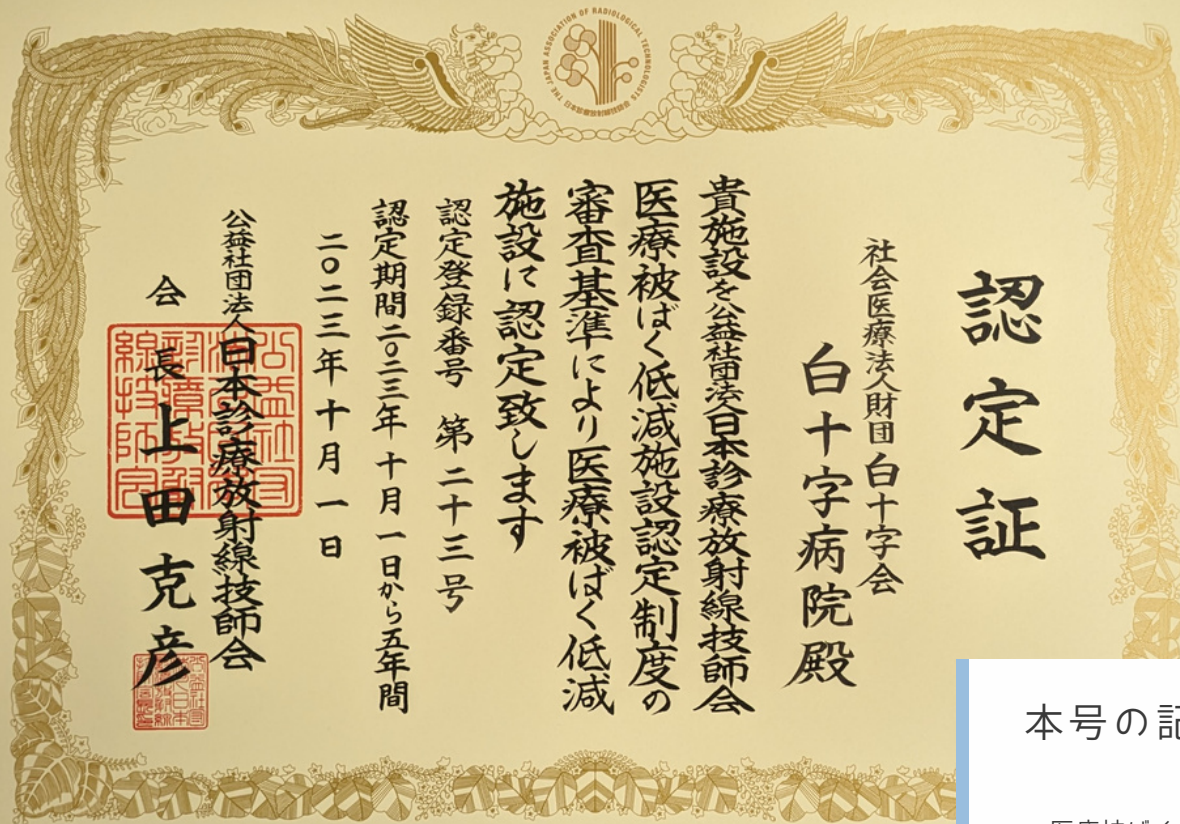 THE JAPAN ASSOCIATION OF RADIOLOGICAL TECHNOLOGISTS
認定証
社会医療法人財団 白十字会
白十字病院殿
貴施設を公益社団法人日本診療放射線技師会
医療被ばく低減施設認定制度の
審査基準により医療被ばく低減
施設に認定致します
認定登録番号 第二十三号
認定期間二〇二三年十月一日から五年間
二〇二三年十月一日
公益社団法人日本診療放射線技師会
会長 上田克彦
本号の記